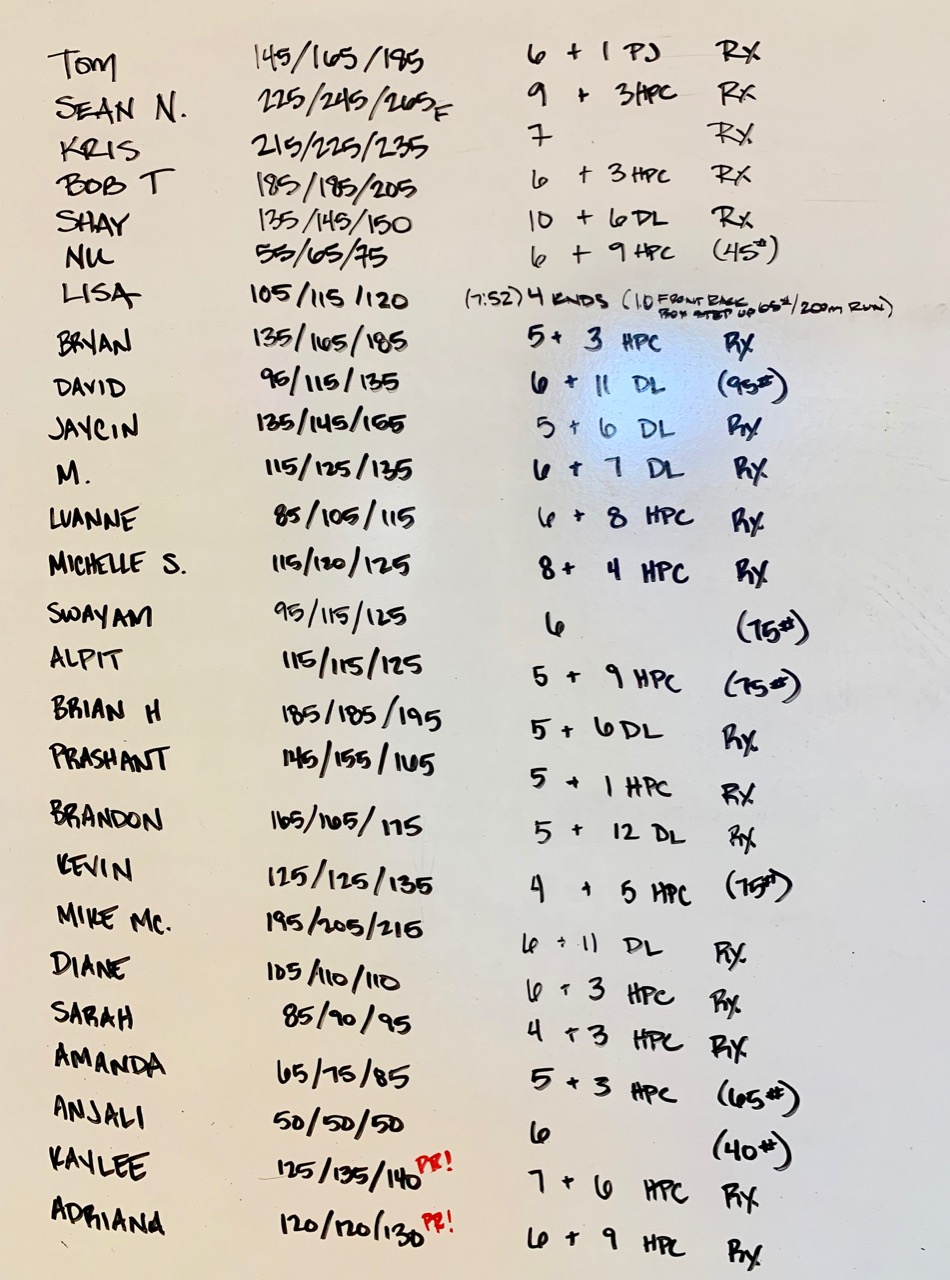 TOM 145/165/185 6 + 1 PJ Rx
SEAN N. 225/245/265F 9 + 3HPC Rx
KRIS 215/225/235 7 Rx
BOB T 185/185/205 6 + 3 HPC Rx
SHAY 135/145/150 10 + 6 DL Rx
55/65/75 6 + 9 HPC (45#)
LISA 105/115/120 (7:52) 4 RNDS (10 FRONT RACK BOX STEP UP 65#/200m RUN)
BRYAN 135/165/185 5 + 3 HPC Rx
DAVID 95/115/135 6 + 11 DL (95#)
JAYCIN 135/145/155 5 + 6 DL Rx
M. 115/125/135 6 + 7 DL Rx
LUANNE 85/105/115 6 + 8 HPC Rx
MICHELLE S. 115/120/125 8 + 4 HPC Rx
SWAYAM 95/115/125 6 (75#)
ALPIT 115/115/125 5 + 9 HPC (75#)
BRIAN H 185/185/195 5 + 6 DL Rx
PRASHANT 145/155/165 5 + 1 HPC Rx
BRANDON 165/165/175 5 + 12 DL Rx
KEVIN 125/125/135 4 + 5 HPC (75#)
MIKE MC. 195/205/215 6 + 11 DL Rx
DIANE 105/110/110 6 + 3 HPC Rx
SARAH 85/90/95 4 + 3 HPC Rx
AMANDA 65/75/85 5 + 3 HPC (65#)
ANJALI 50/50/50 6 (40#)
KAYLEE 125/135/140 PR! 7 + 6 HPC Rx
ADRIANA 120/120/130 PR! 6 + 9 HPC Rx